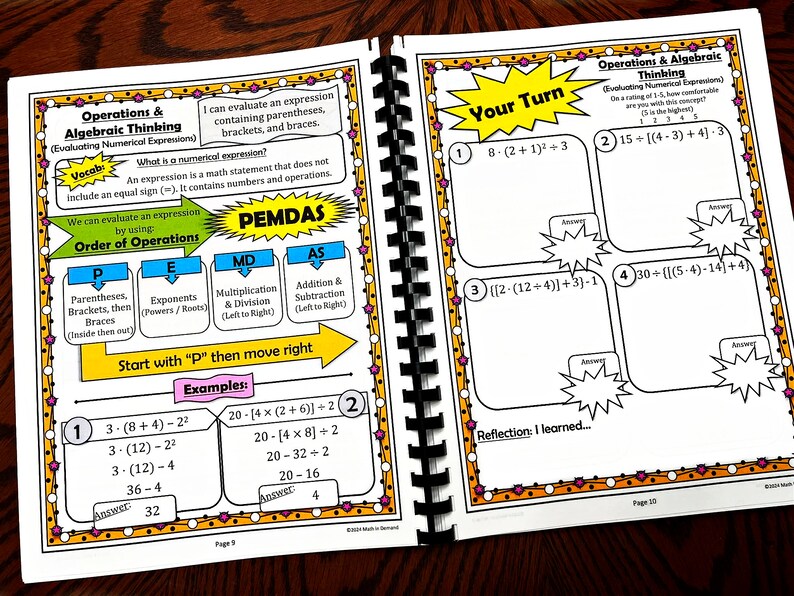 Operations &
Algebraic Thinking
(Evaluating Numerical Expressions)
I can evaluate an expression
containing parentheses,
brackets, and braces.
Vocab:
What is a numerical expression?
An expression is a math statement that does not
include an equal sign (=). It contains numbers and operations.
We can evaluate an expression
by using:
Order of Operations
PEMDAS
P
Parentheses,
Brackets, then
Braces
(Inside then out)
E
Exponents
(Powers / Roots)
MD
Multiplication
& Division
(Left to Right)
AS
Addition &
Subtraction
(Left to Right)
Start with "P" then move right
Examples:
1
3 · (8 + 4) – 2²
3 · (12) – 2²
3 · (12) – 4
36 – 4
Answer:
32
2
20 - [4 × (2 + 6)] ÷ 2
20 - [4 × 8] ÷ 2
20 – 32 ÷ 2
20 – 16
Answer:
4
©2024 Math in Demand
Page 9
Your Turn
Operations & Algebraic
Thinking
(Evaluating Numerical Expressions)
On a rating of 1-5, how comfortable
are you with this concept?
(5 is the highest)
1 2 3 4 5
1
8 · (2 + 1)² ÷ 3
Answer
2
15 ÷ [(4 - 3) + 4] · 3
Answer
3
{[2 · (12 ÷ 4)] + 3} - 1
Answer
4
30 ÷ {[(5 · 4) - 14] + 4}
Answer
Reflection: I learned...
Page 10
©2024 Math in Demand